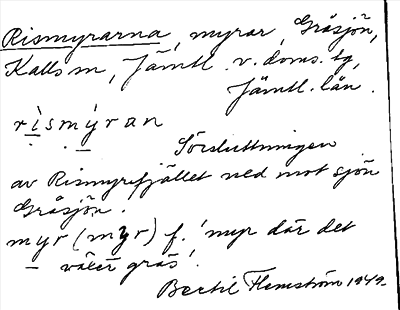 Rismyrarna, myrar, Gråsjön,
Kalls sn, Jämtl. v. doms. tg,
Jämtl. län.
rìsmýran
Sörsluttningen
av Rismyrefjället ned mot sjön
Gråsjön.
myr (myr) f. 'myr där det
växer gräs'.
Bertil Flemström 1949